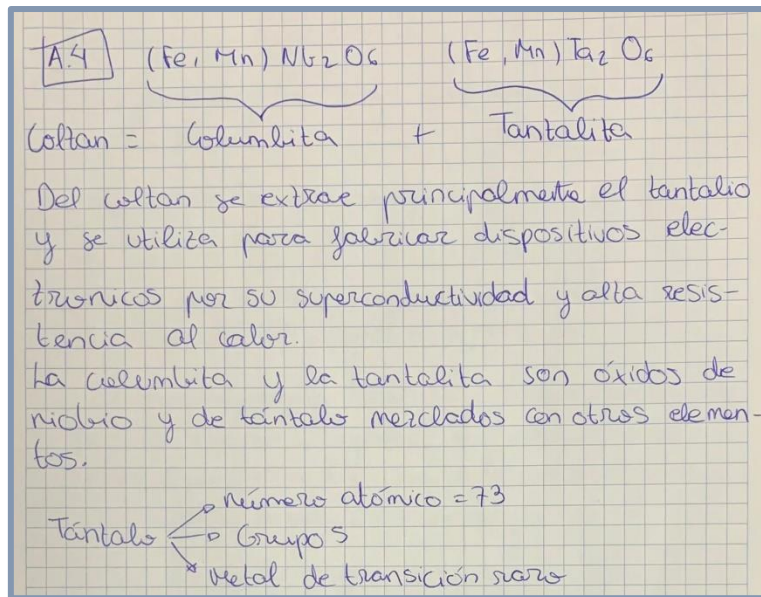 A.4 (Fe, Mn) Nb₂O₆ (Fe, Mn) Ta₂O₆
Coltan = Columbita + Tantalita
Del coltan se extrae principalmente el tantalio
y se utiliza para fabricar dispositivos elec-
tronicos por su superconductividad y alta resis-
tencia al calor.
La columbita y la tantalita son óxidos de
niobio y de tántalo mezclados con otros elemen-
tos.
número atómico = 73
Tántalo Grupo 5
Metal de transición raro